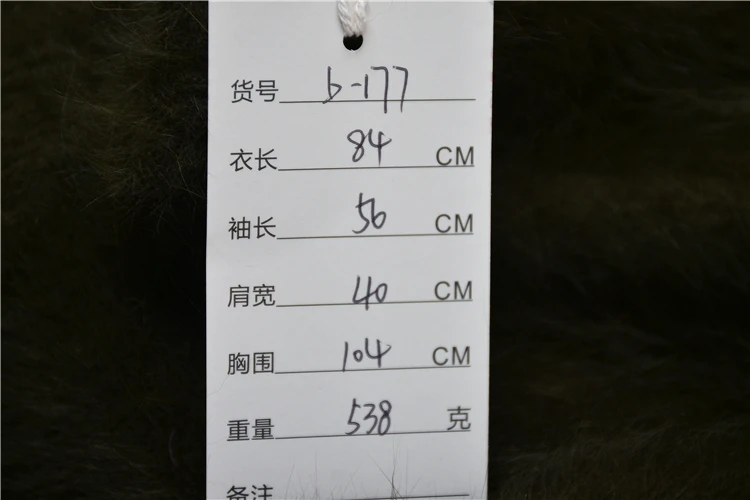 货号 b-177
衣长 84 CM
袖长 56 CM
肩宽 40 CM
胸围 104 CM
重量 538 克
备注